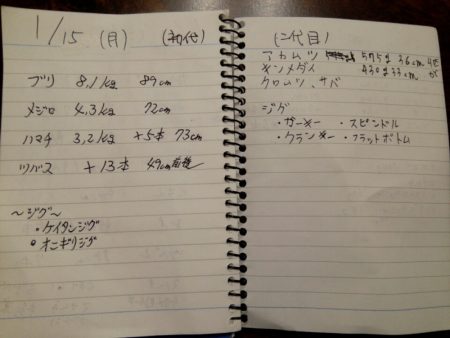 1/15 (月) (初代)
ブリ 8,1kg 89cm
メジロ 4,3kg 72cm
ハマチ 3,2kg +5本 73cm
ツバス +13本 49cm前後
〜ジグ〜
・ケイタンジグ
・オニギリジグ
(二代目)
アカムツ 575g 36cm
キンメダイ 430g 33cm
クロムツ、サバ
ジグ
・ガーキー ・スピンドル
・クランキー ・フラットボトム